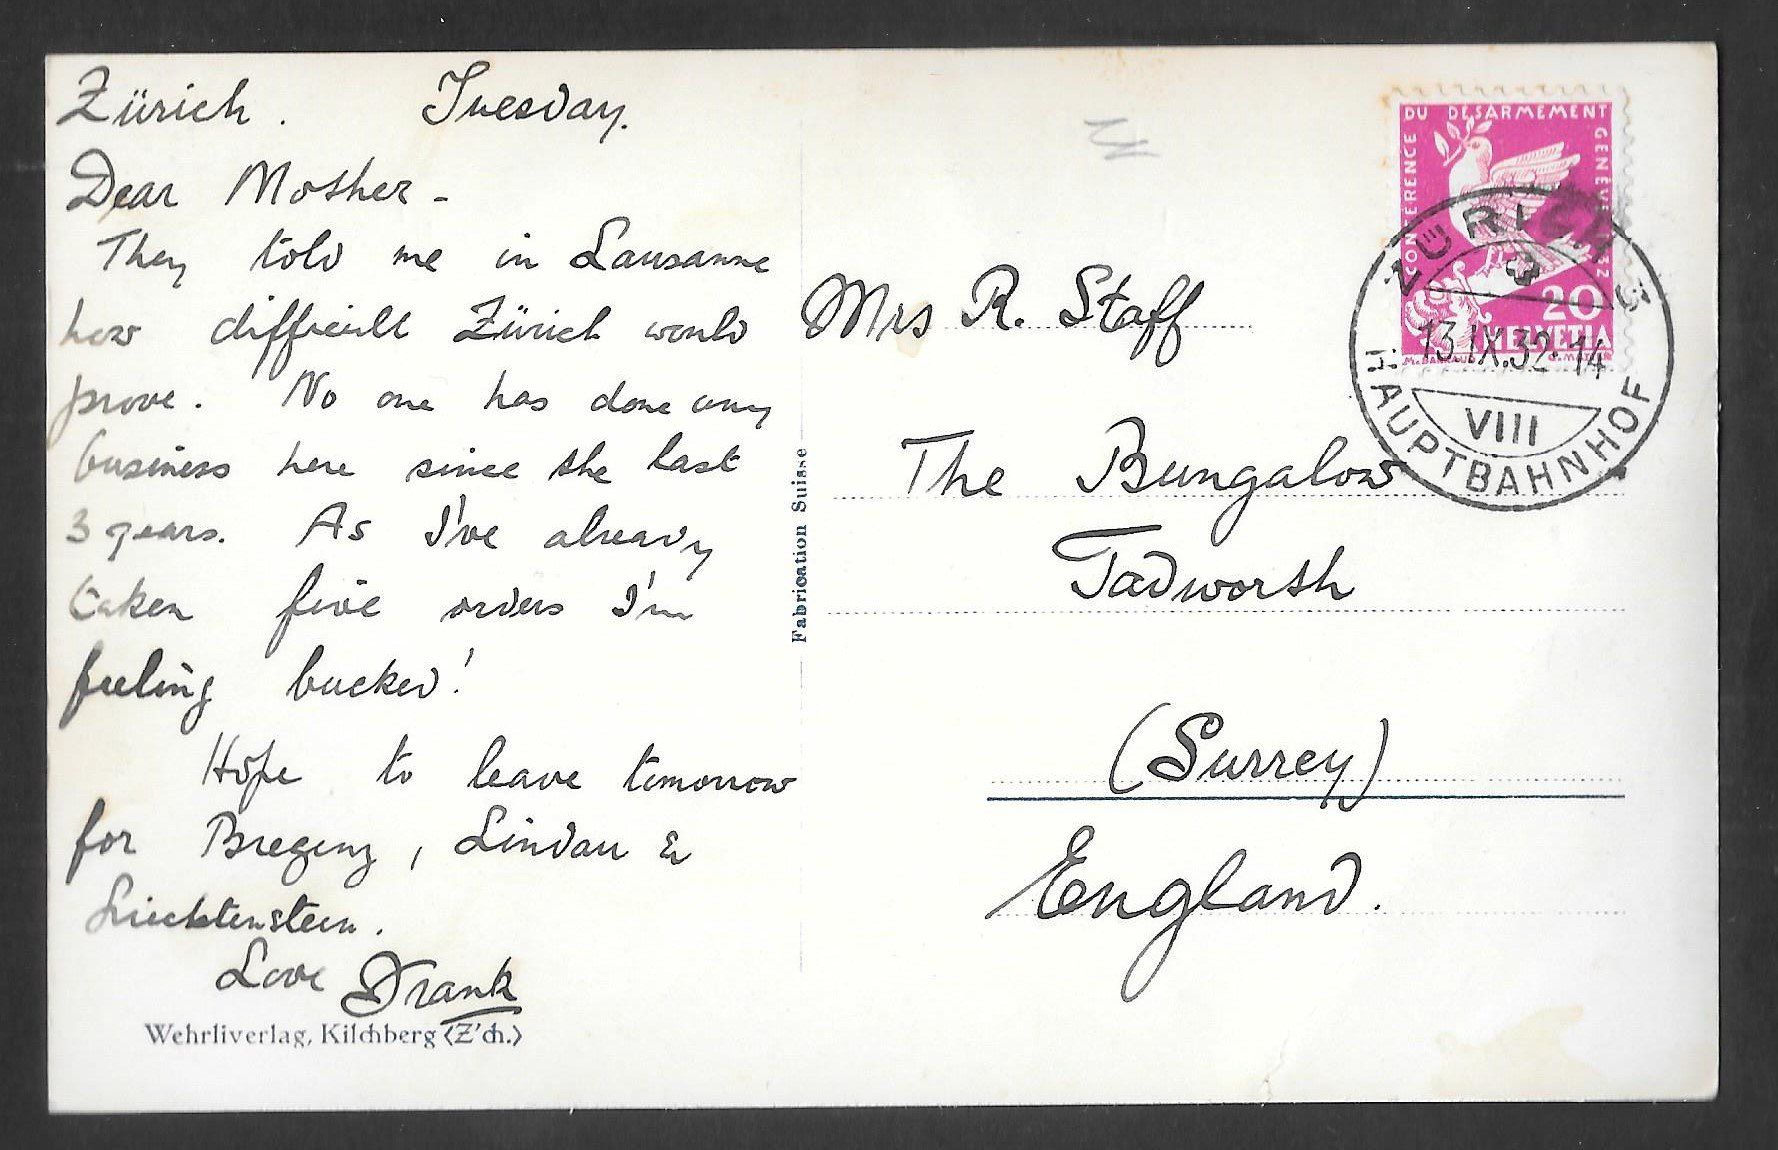 Zürich. Tuesday.
Dear Mother -
They told me in Lausanne
how difficult Zürich would
prove. No one has done any
business here since the last
3 years. As I've already
taken five orders I'm
feeling bucked!
Hope to leave tomorrow
for Bregenz, Lindau &
Liechtenstein.
Love Frank
Wehrliverlag, Kilchberg (Z'ch.)
Fabrication Suisse
Mrs R. Staff
The Bungalow
Tadworth
(Surrey)
England.
CONFERENCE DU DESARMEMENT GENÈVE 1932
20
HELVETIA
ZÜRICH
13.IX.32.14
VIII
HAUPTBAHNHOF